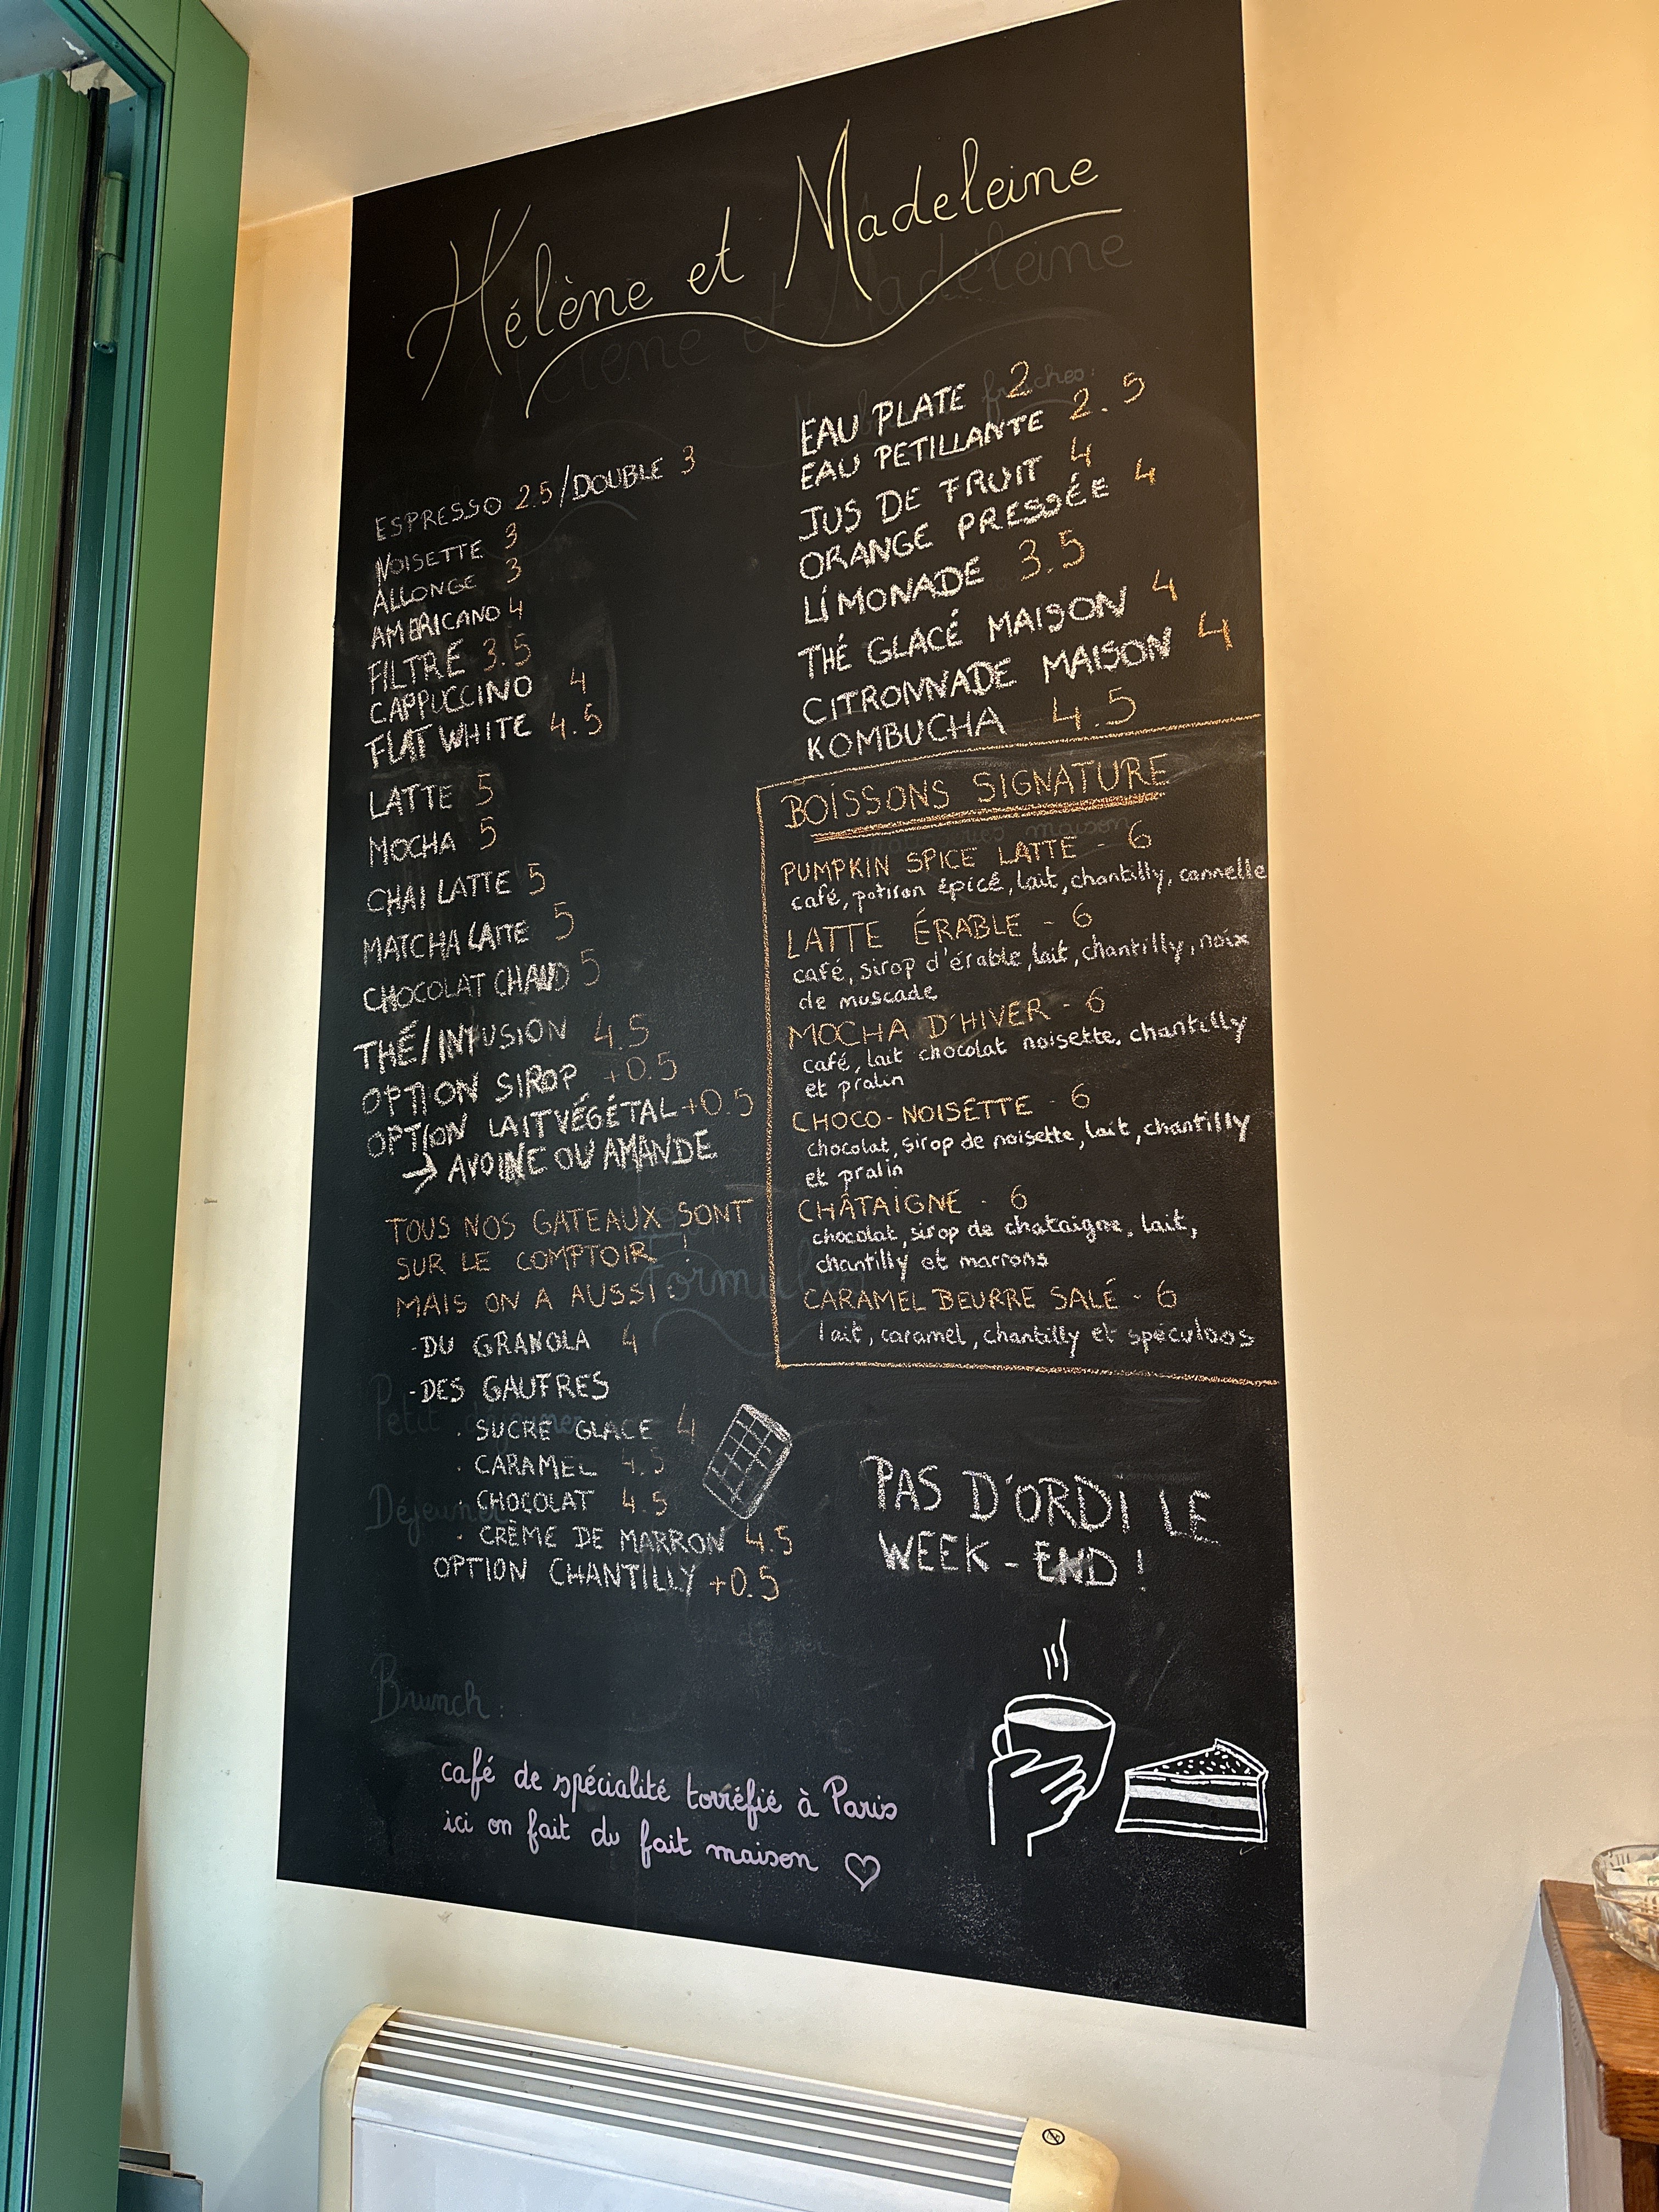 Hélène et Madeleine
ESPRESSO 2.5/DOUBLE 3
NOISETTE 3
ALLONGE 3
AMERICANO 4
FILTRE 3.5
CAPPUCCINO 4
FLAT WHITE 4.5
LATTE 5
MOCHA 5
CHAI LATTE 5
MATCHA LATTE 5
CHOCOLAT CHAUD 5
THÉ/INFUSION 4.5
OPTION SIROP +0.5
OPTION LAIT VÉGÉTAL +0.5
→ AVOINE OU AMANDE
TOUS NOS GATEAUX SONT
SUR LE COMPTOIR !
MAIS ON A AUSSI :
-DU GRANOLA 4
-DES GAUFRES
. SUCRE GLACE 4
. CARAMEL 4.5
. CHOCOLAT 4.5
. CRÈME DE MARRON 4.5
OPTION CHANTILLY +0.5
EAU PLATE 2
EAU PETILLANTE 2.5
JUS DE FRUIT 4
ORANGE PRESSÉE 4
LIMONADE 3.5
THÉ GLACÉ MAISON 4
CITRONNADE MAISON 4
KOMBUCHA 4.5
BOISSONS SIGNATURE
PUMPKIN SPICE LATTE - 6
café, potiron épicé, lait, chantilly, cannelle
LATTE ÉRABLE - 6
café, sirop d'érable, lait, chantilly, noix
de muscade
MOCHA D'HIVER - 6
café, lait chocolat noisette, chantilly
et pralin
CHOCO-NOISETTE - 6
chocolat, sirop de noisette, lait, chantilly
et pralin
CHÂTAIGNE - 6
chocolat, sirop de chataigne, lait,
chantilly et marrons
CARAMEL BEURRE SALÉ - 6
lait, caramel, chantilly et spéculoos
PAS D'ORDI LE
WEEK-END !
Petit déjeuner
Déjeuner
Formules
Brunch :
café de spécialité torréfié à Paris
ici on fait du fait maison ♡